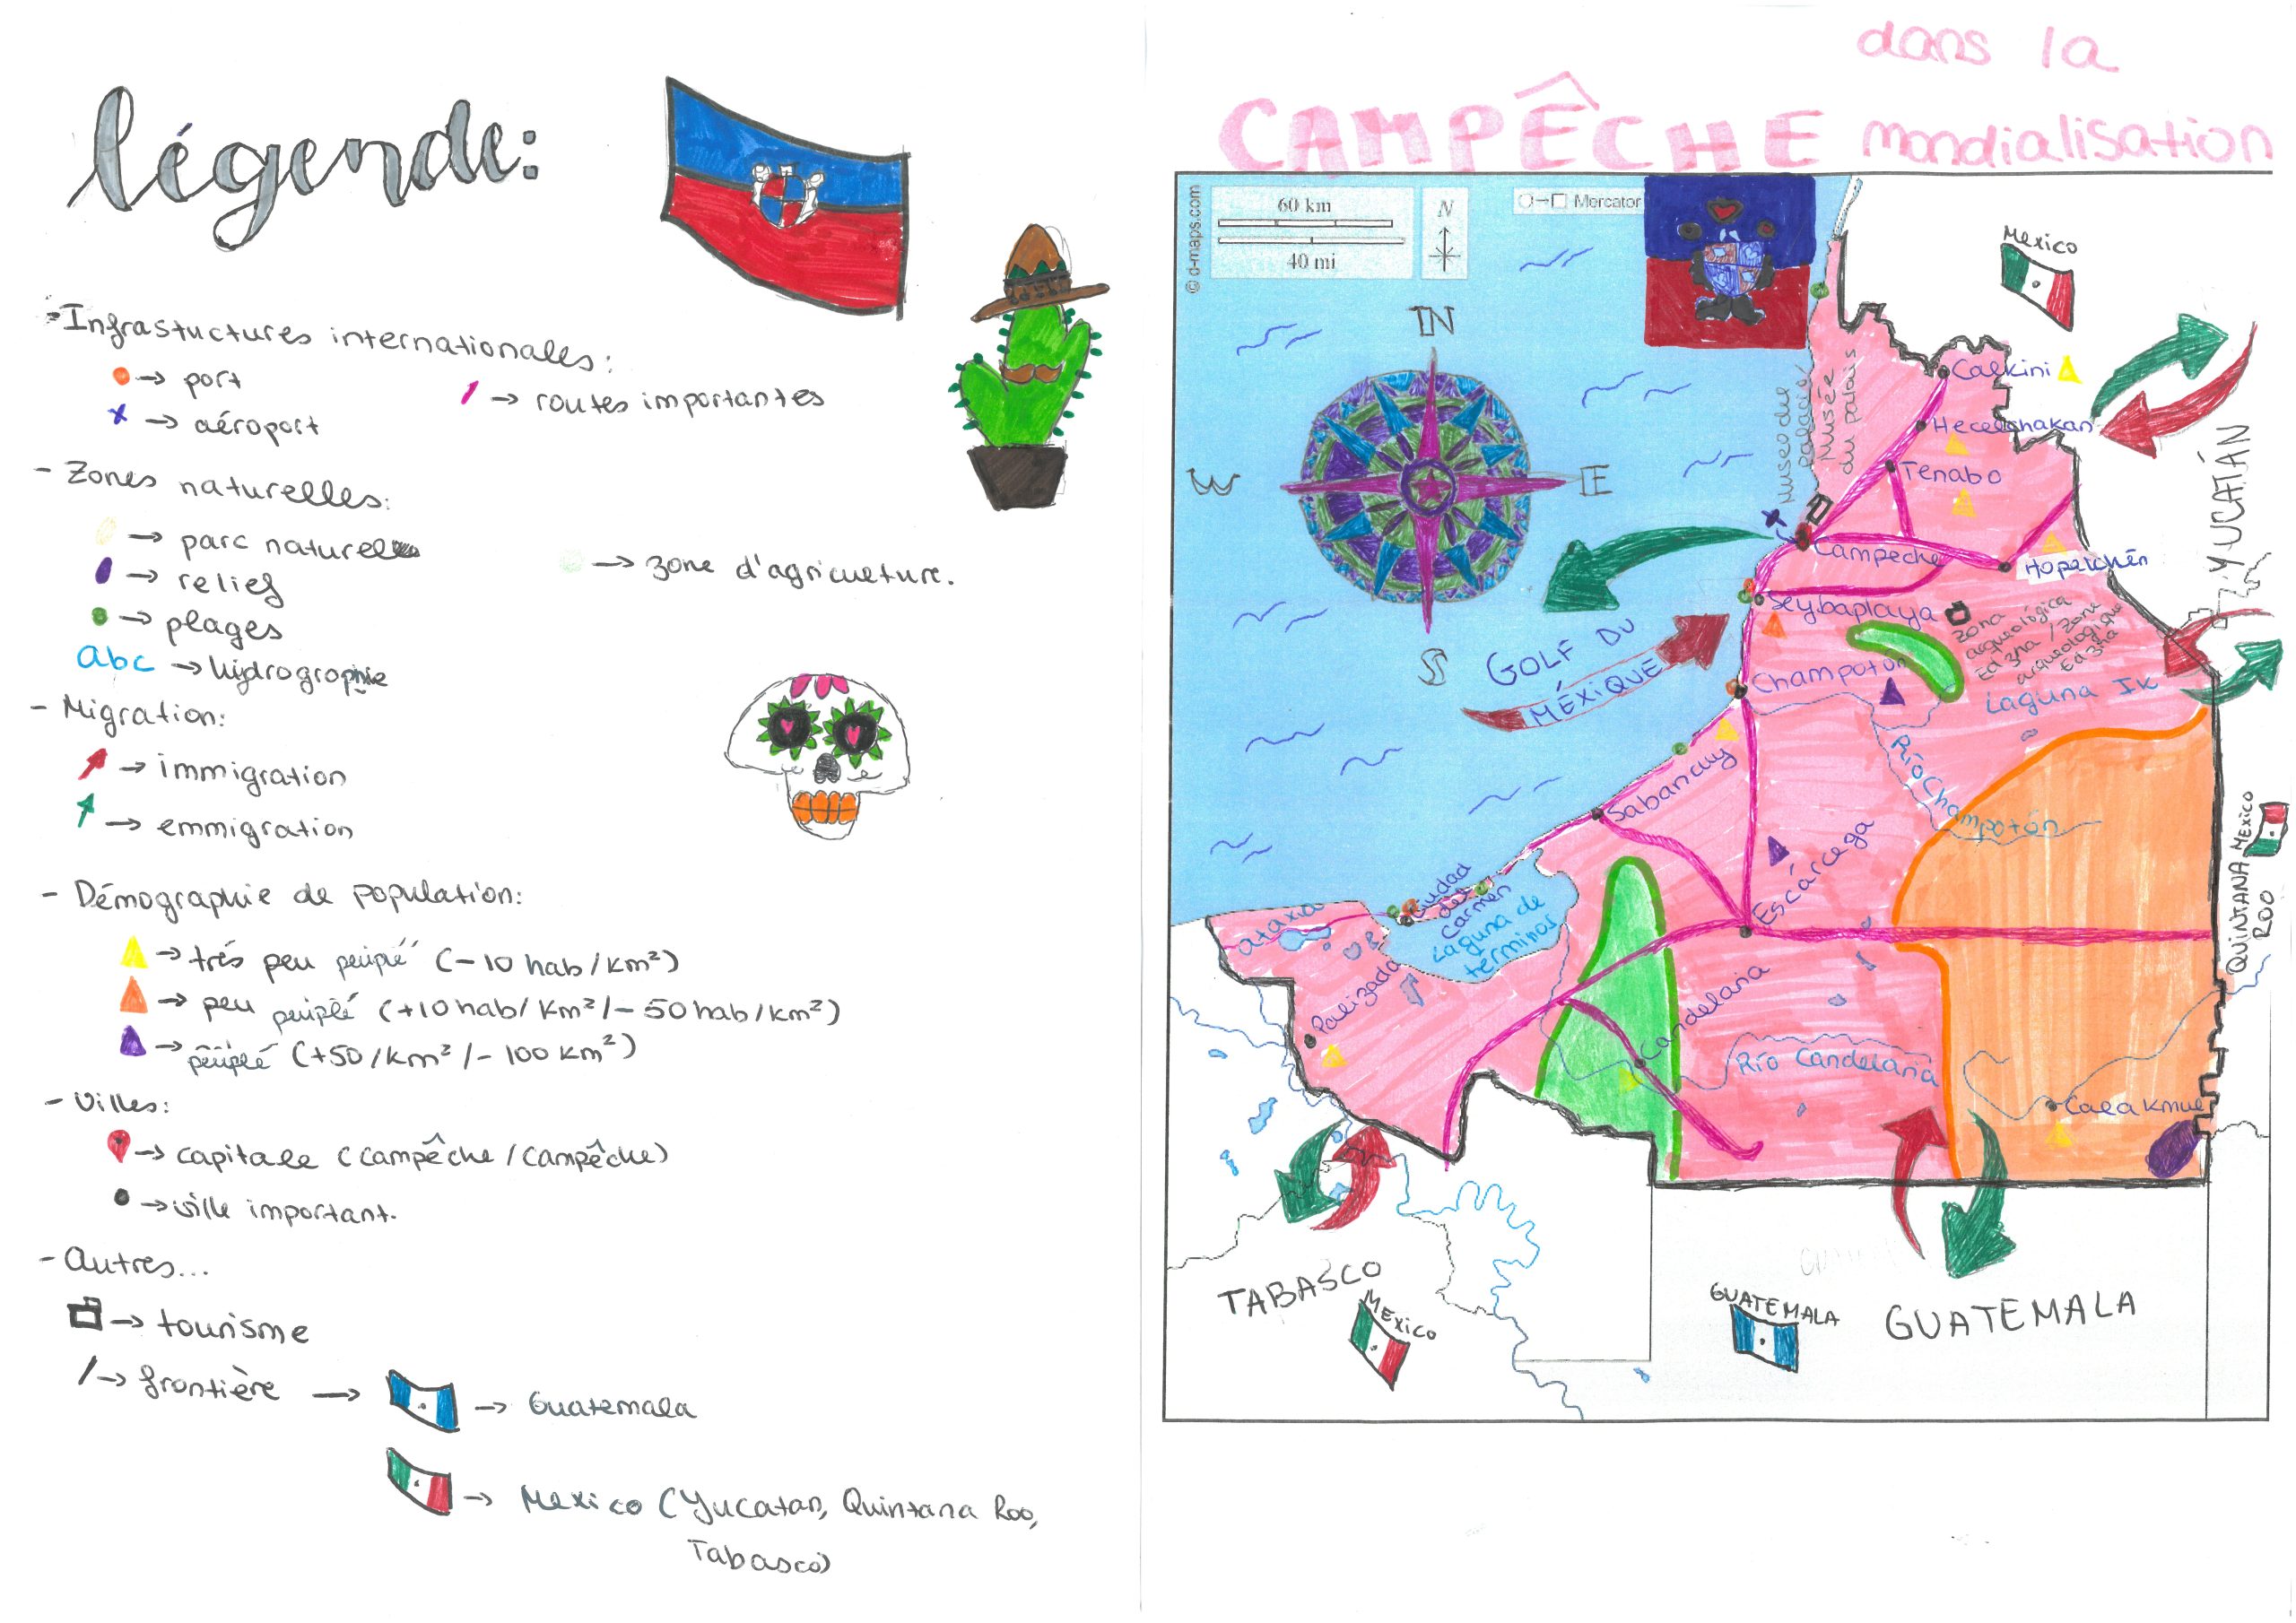 légende:
- Infrastuctures internationales:
→ port
→ routes importantes
→ aéroport
- Zones naturelles:
→ parc naturel
→ zone d'agriculture.
→ relief
→ plages
abc → hidrographie
- Migration:
→ immigration
→ emmigration
- Démographie de population:
→ trés peu peuplé (-10 hab/km²)
→ peu peuplé (+10 hab/km²/-50 hab/km²)
→ peuplé (+50/km²/-100 km²)
- Villes:
→ capitale (Campêche/Campêche)
→ ville important.
- Autres...
→ tourisme
/→ frontière → → Guatemala
→ Mexico (Yucatan, Quintana Roo,
Tabasco)
dans la
CAMPÊCHE mondialisation
© d-maps.com
60 km
40 mi
N
Mercator
Mexico
N
W
E
S
Calkini
Museo du
palacio/
Musée
du palais
Hecelchakan
Tenabo
YUCATÁN
Campeche
Hopelchén
Seybaplaya
Zona
arqueológica
Edzna / Zone
arqueologique
Edzna
GOLF DU
MÉXIQUE
Champotón
Laguna Ik
Río Champotón
Sabancuy
Escárcega
QUINTANA
ROO
MEXICO
Ciudad
del
Carmen
Laguna de
términos
ataxia
Palizada
Candelaria
Río Candelaria
Calakmul
TABASCO
MEXICO
GUATEMALA
GUATEMALA